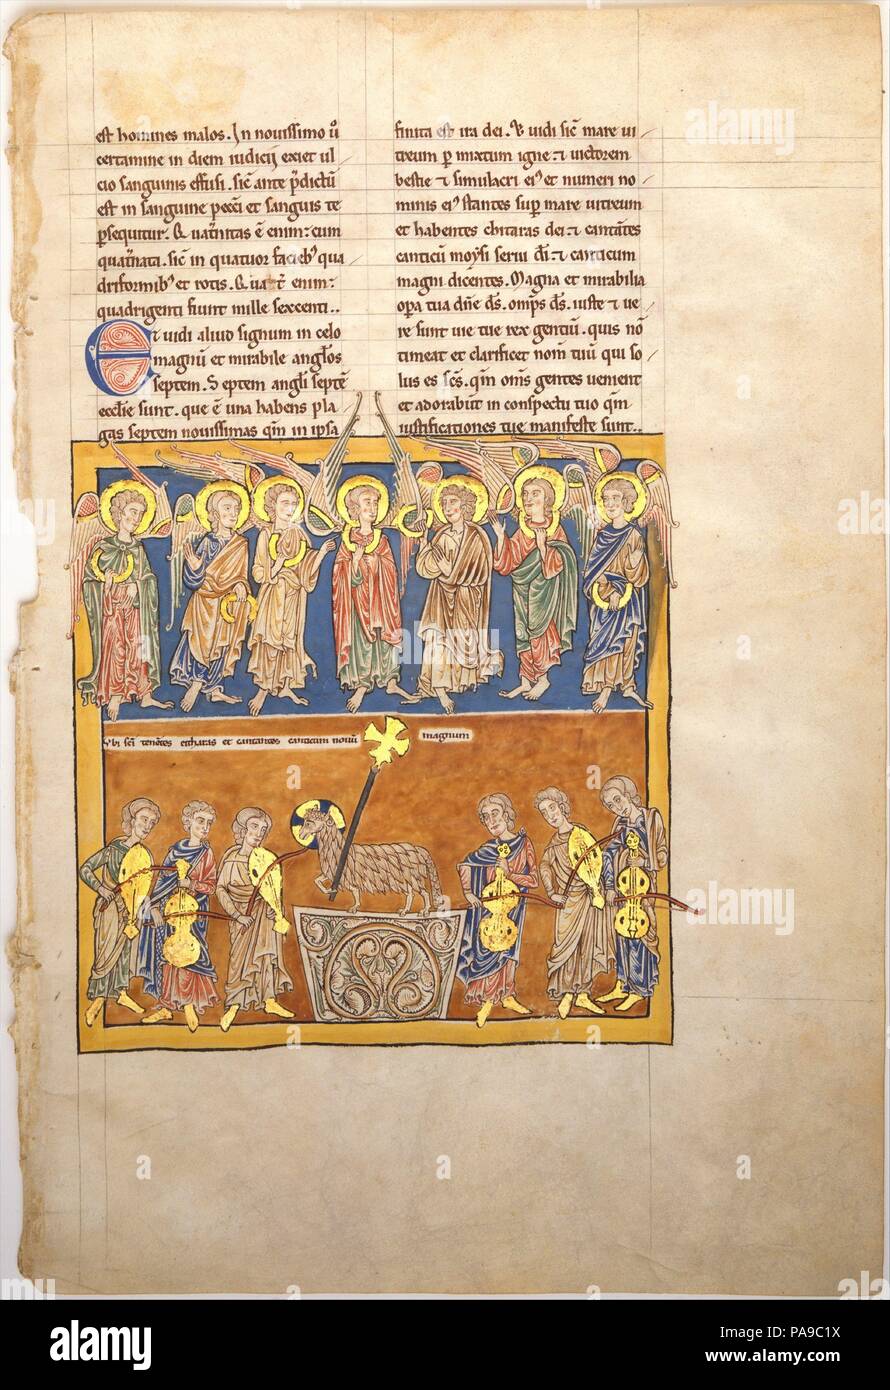 est homines malos. In nouissimo u
certamine in diem iudicij exiet ul
cio sanguinis effusi. sic ante pdictu
est in sanguine pecci et sanguis te
psequitur. Quatnitas e enim: cum
quatnata. sic in quatuor facieb' qua
driformib' et rotis. Qua t enim:
quadrigenti fiunt mille sexcenti..
Et uidi aliud signum in celo
magnu et mirabile anglos
septem. Septem angli septe
ecclie sunt. que e una habens pla
gas septem nouissimas qm in ipsa
finita est ira dei. & uidi sic mare ui
treum p mixtum igne: & uictorem
bestie & simulacri ei' et numeri no
minis ei' stantes sup mare uitreum
et habentes chitaras dei: & cantantes
canticu moysi serui di: & canticum
magni dicentes. Magna et mirabilia
opa tua dne ds. omps ds. iuste & ue
re sunt uie tue rex gentiu. quis no
timeat et clarificet nom tuu qui so
lus es scs. qm oms gentes uenient
et adorabut in conspectu tuo qm
iustificationes tue manifeste sunt..
Vbi sci tenetes citharas et cantantes canticum nouu magnum
alamy
Image ID: PA9C1X
www.alamy.com